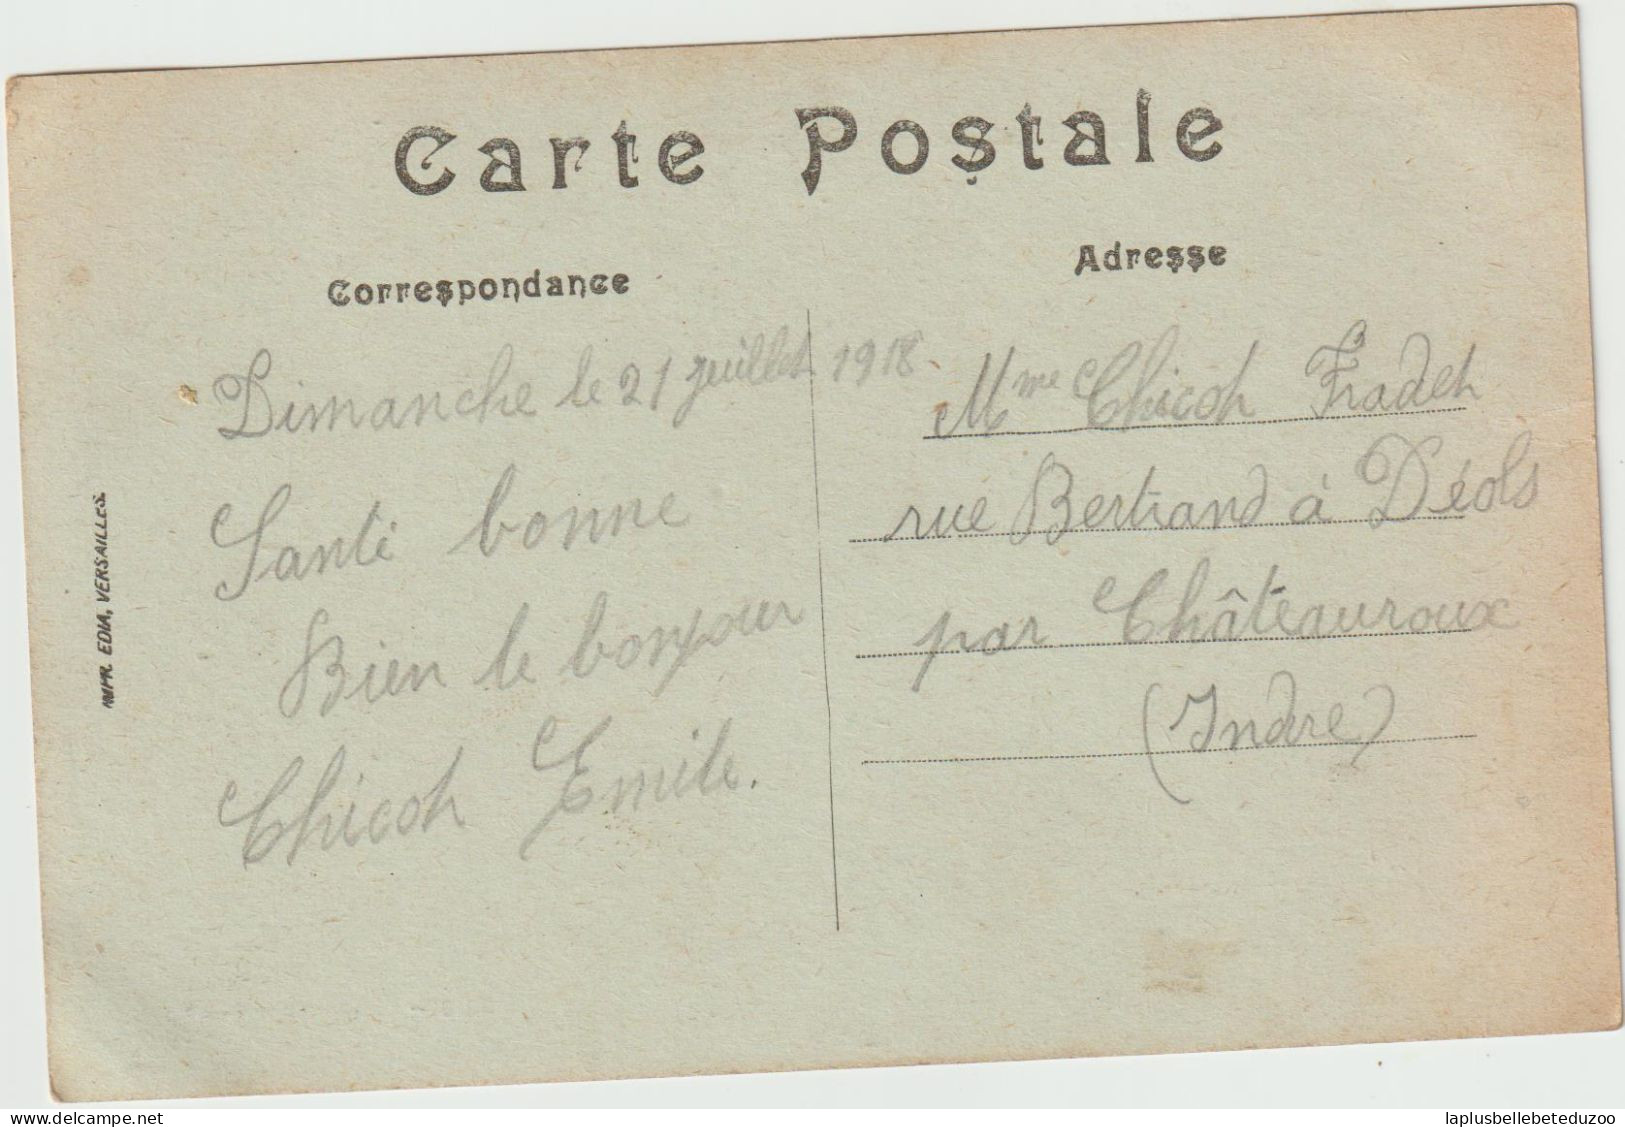 Carte Postale
Correspondance
Adresse
Dimanche le 21 juillet 1918
Santé bonne
Bien le bonjour
Chicot Emile.
Mme Chicot Fradet
rue Bertrand à Déols
par Châteauroux
(Indre)
IMPR. EDIA, VERSAILLES.
delcampe.net
laplusbellebeteduzoo